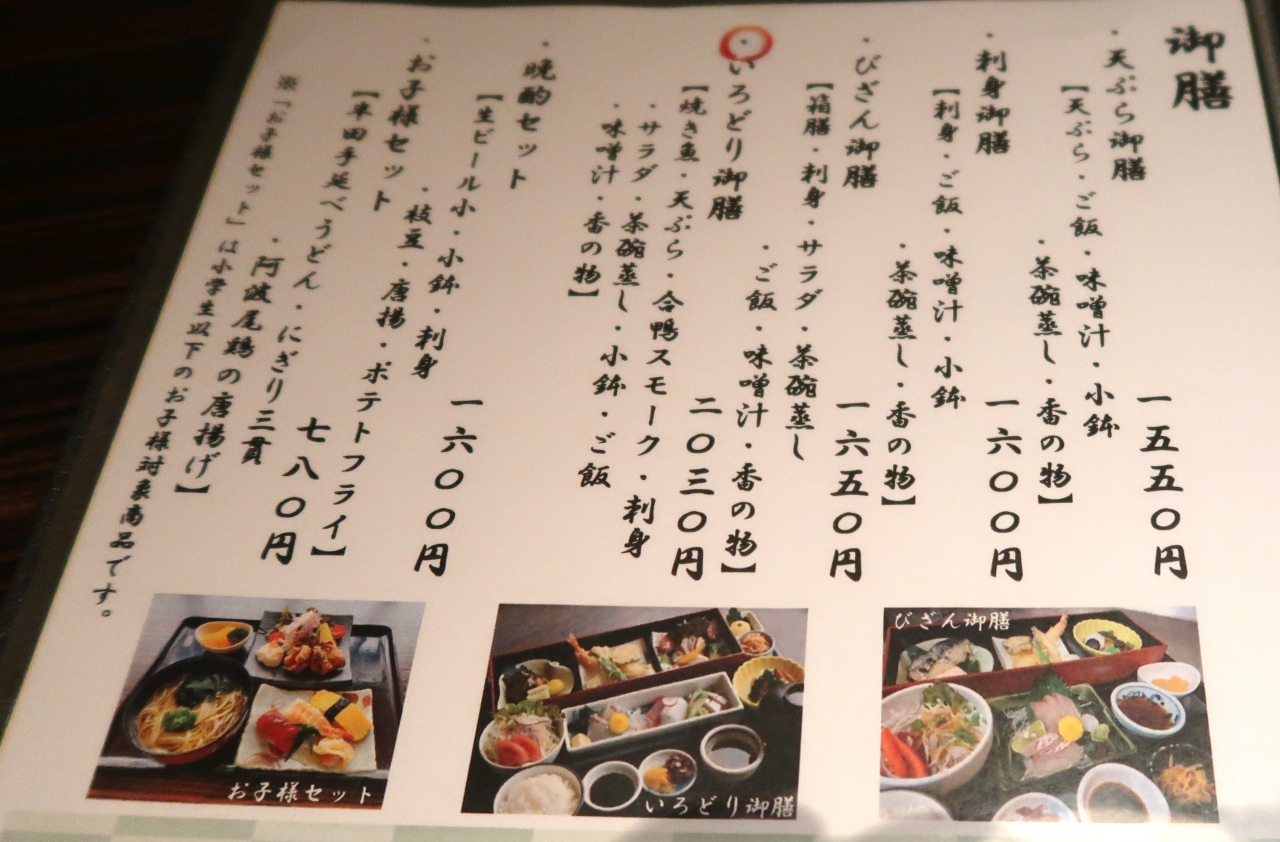 御膳
・天ぷら御膳
【天ぷら・ご飯・味噌汁・小鉢
・茶碗蒸し・香の物】
一五五〇円
・刺身御膳
【刺身・ご飯・味噌汁・小鉢
・茶碗蒸し・香の物】
一六〇〇円
・びざん御膳
【箱膳・刺身・サラダ・茶碗蒸し
・ご飯・味噌汁・香の物】
一六五〇円
・いろどり御膳
【焼き魚・天ぷら・合鴨スモーク・刺身
・サラダ・茶碗蒸し・小鉢・ご飯
・味噌汁・香の物】
二〇三〇円
・晩酌セット
【生ビール小・小鉢・刺身
・枝豆・唐揚・ポテトフライ】
一六〇〇円
・お子様セット
【半田手延べうどん・にぎり三貫
・阿波尾鶏の唐揚げ】
七八〇円
※「お子様セット」は小学生以下のお子様対象商品です。
びざん御膳
いろどり御膳
お子様セット